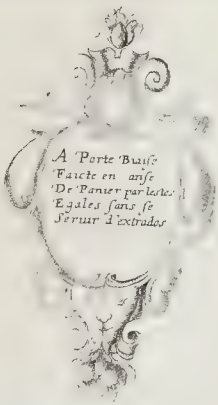 A Porte Buise
Faicte en anse
De Panier par testes
Egales sans se
Seruir d'extrados